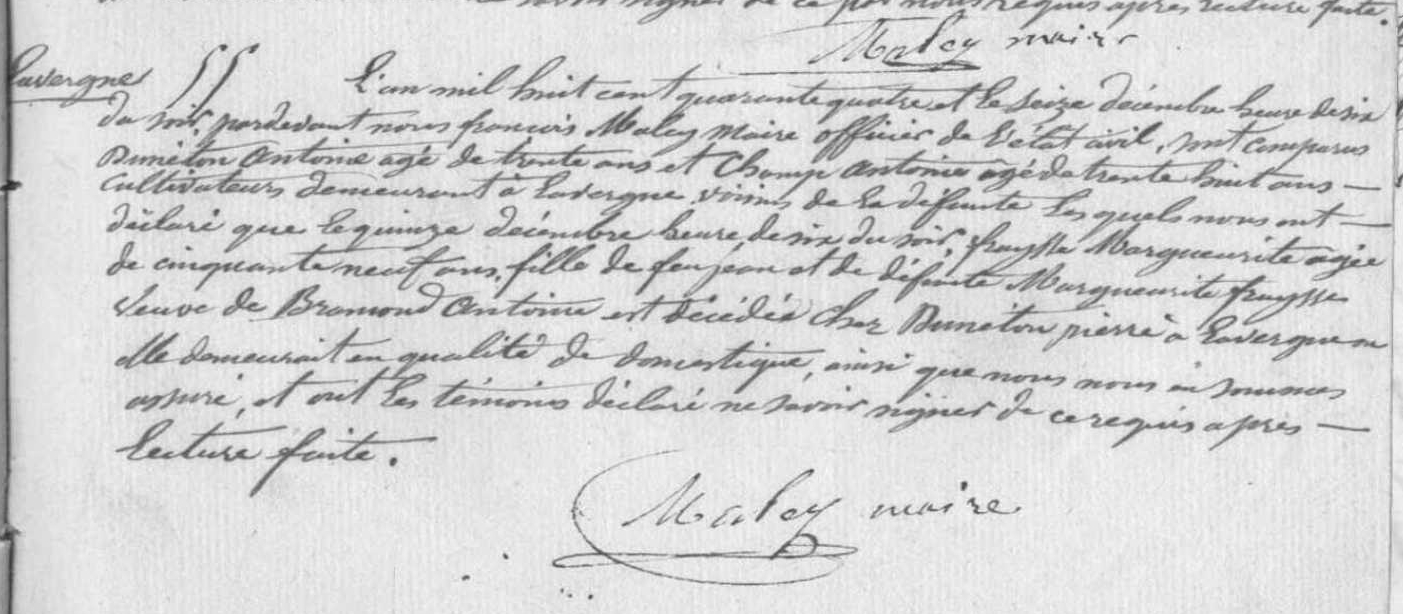 savoir signer de ce par nous requis après lecture faite.
Maley maire
Lavergne
L'an mil huit cent quarante quatre et le seize décembre heure de six
du soir, pardevant nous francois Maley Maire officier de l'état civil, sont comparus
Dunéton Antoine agé de trente ans et Champ Antoine agé de trente huit ans —
cultivateurs demeurant à Lavergne voisins de la défunte les quels nous ont —
déclaré que le quinze décembre heure de six du soir, fraysse Margueurite agée
de cinquante neuf ans, fille de feu jean et de défunte Margueurite fraysse
veuve de Bramond Antoine est décédée chez Dunéton pierre à Lavergne ou
elle demeurait en qualité de domestique, ainsi que nous nous en sommes
assuré, et ont les témoins déclaré ne savoir signer de ce requis après —
lecture faite.
Maley maire